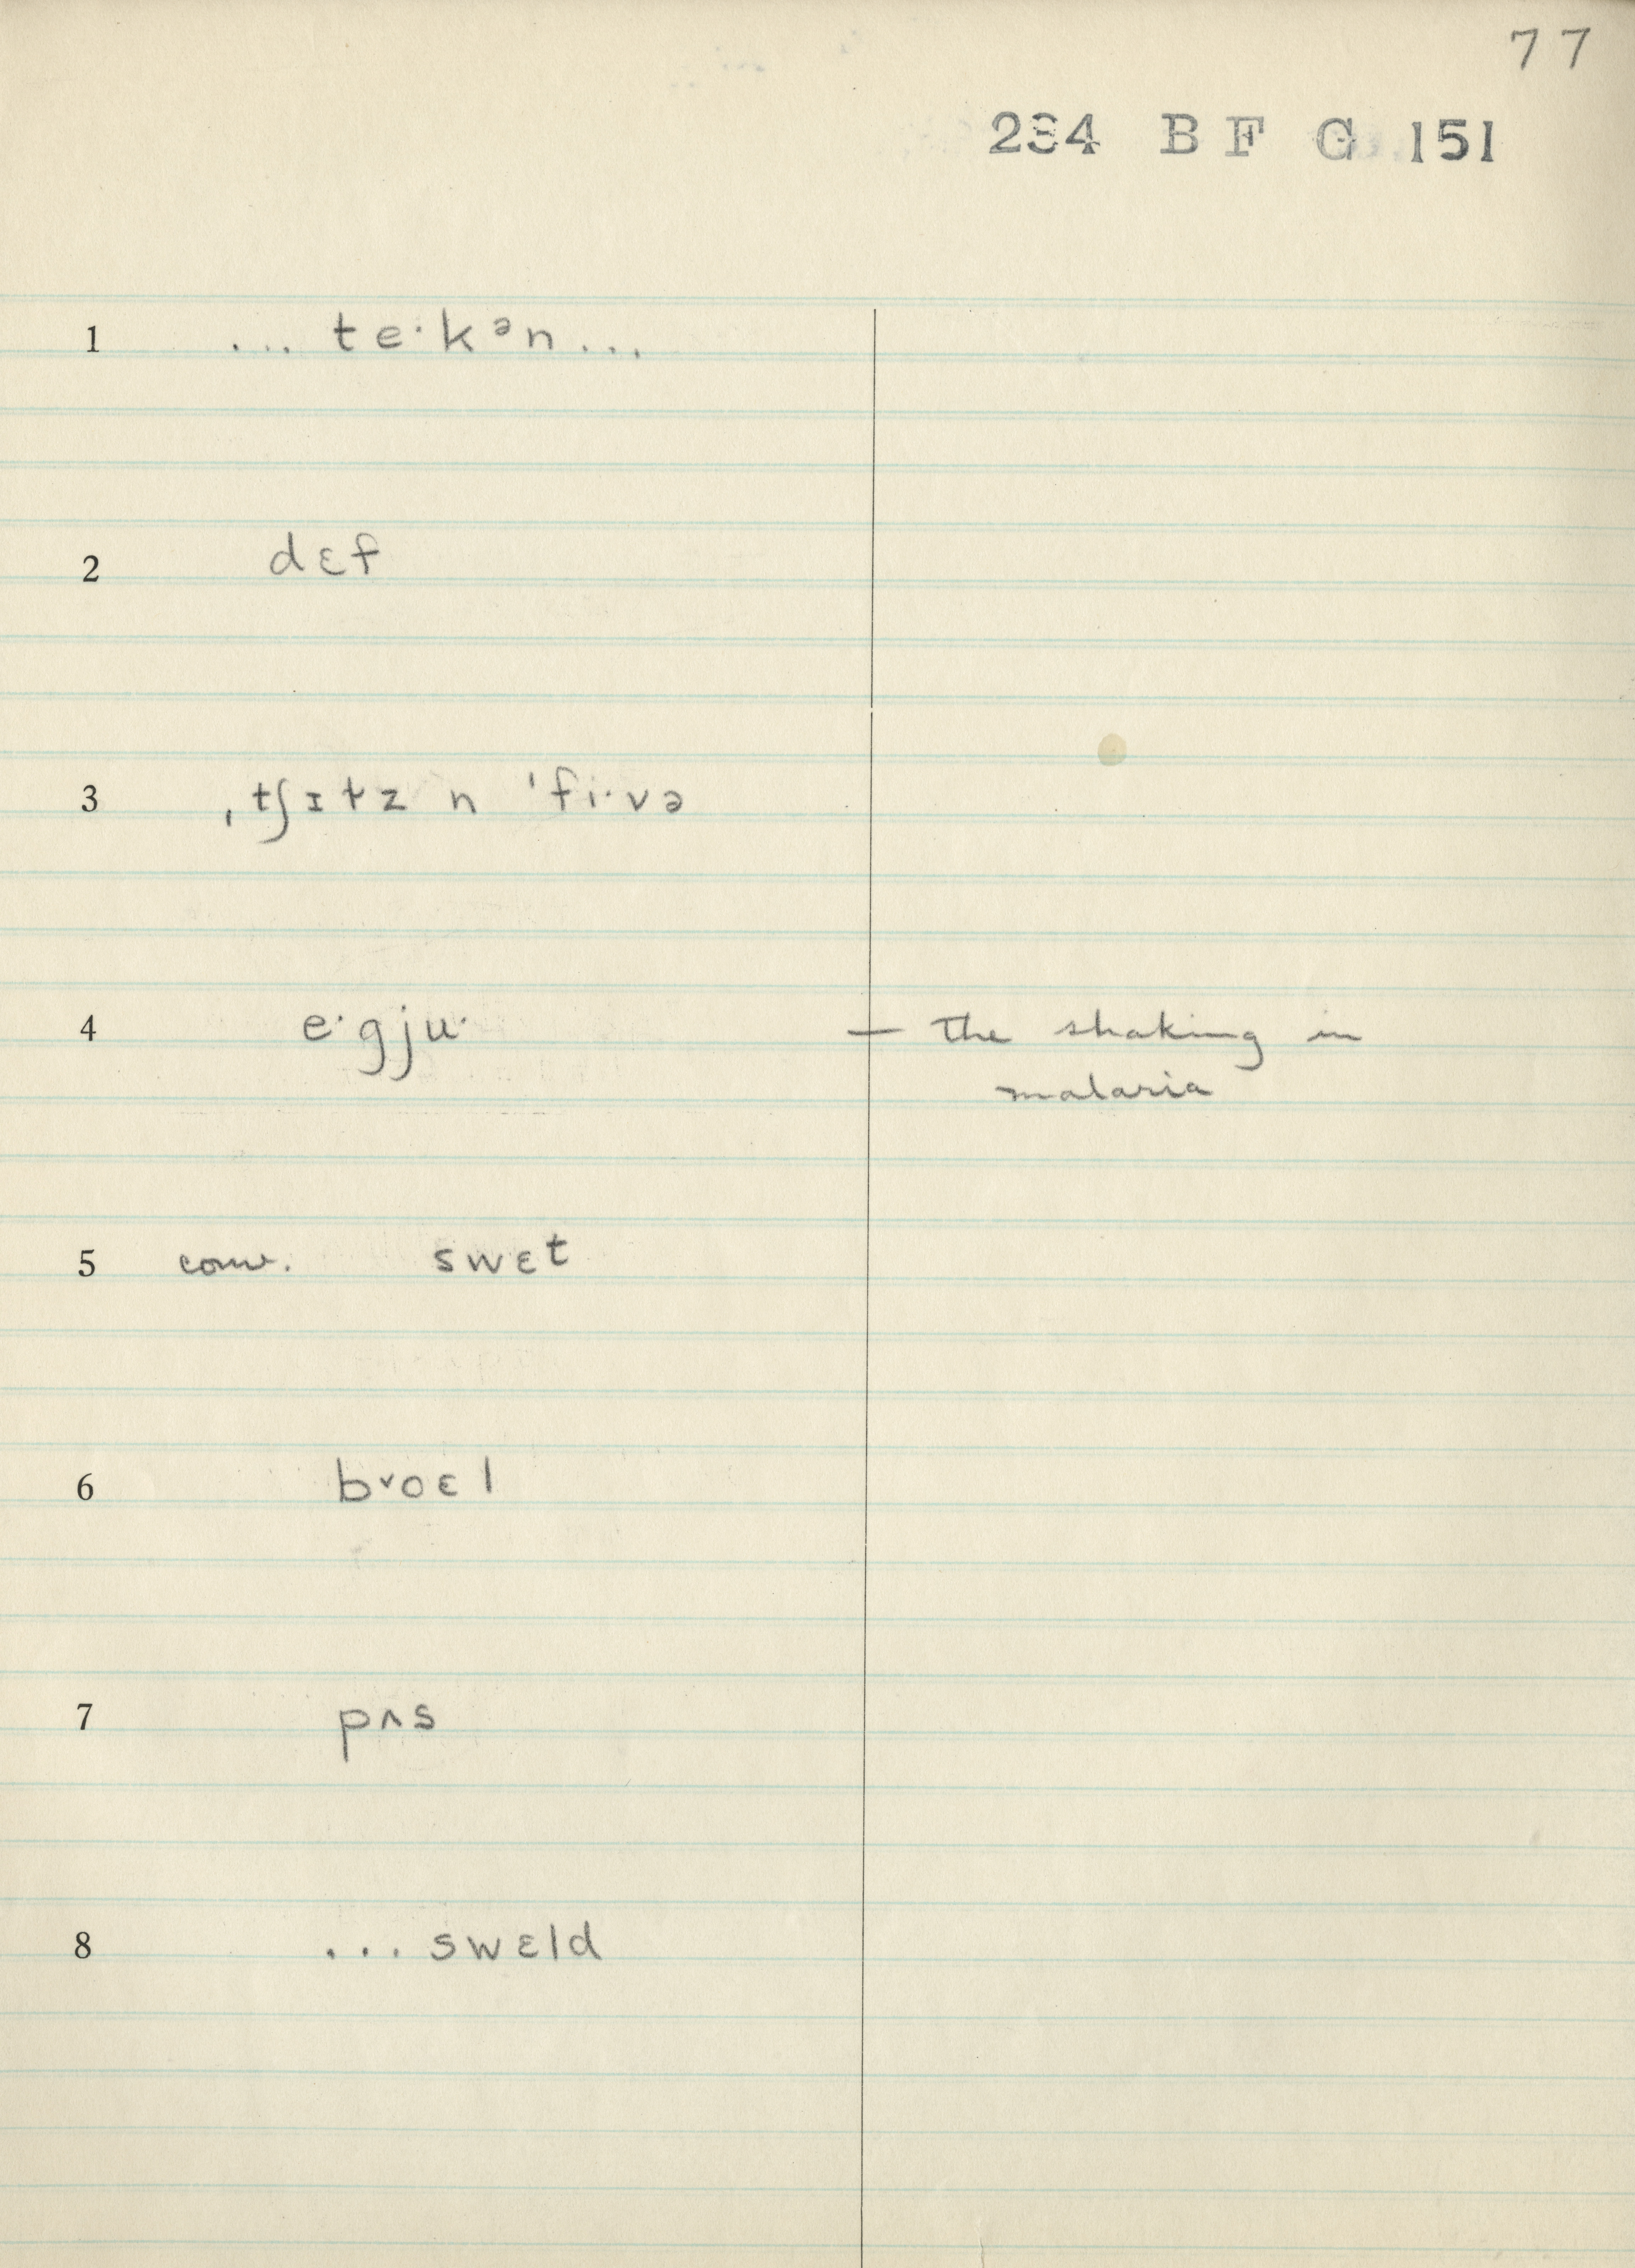 77
234 B F G 151
1 ... te·kᵊn ...
2 dɛf
3 ˌtʃɪtz n ˈfi·və
4 e·gju· — the shaking in
malaria
5 conv. swɛt
6 bvoɛl
7 pʌs
8 ... swɛld